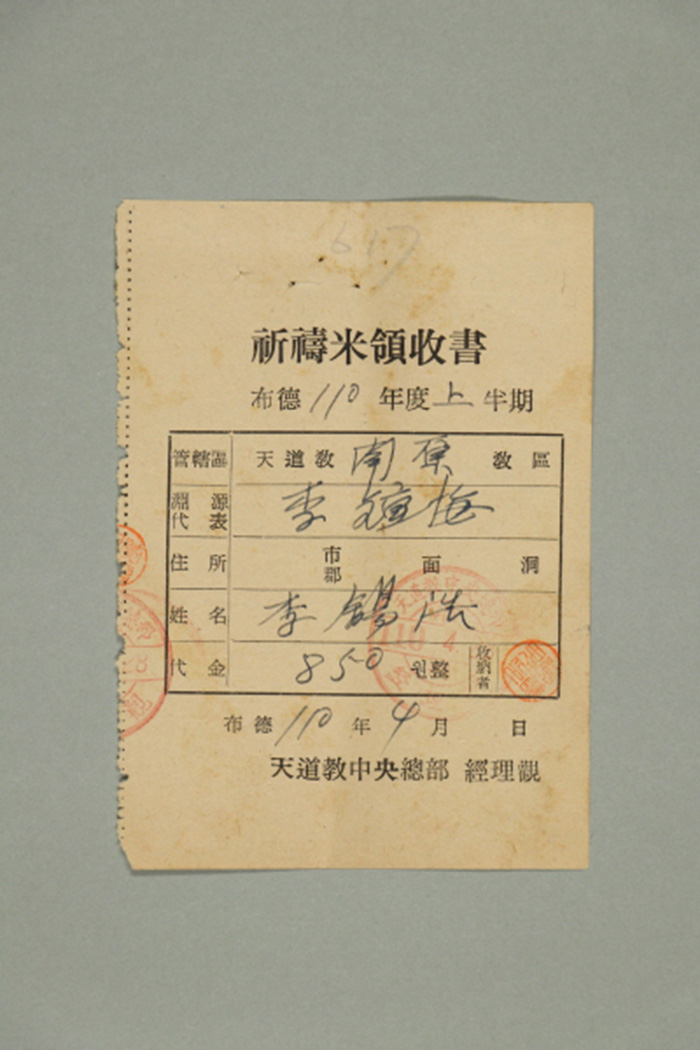 617
祈禱米領收書
布德 110 年度 上 半期
管轄區 天道敎 南原 敎區
淵源代表 李鍾
住所 市郡 面 洞
姓名 李錫浩
代金 850 원整 收納者
布德 110 年 4 月 日
天道敎中央總部 經理觀